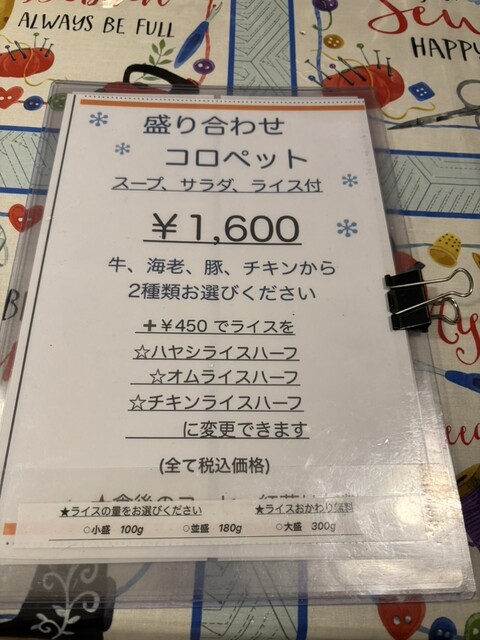 ALWAYS BE FULL
Sew
HAPPY
盛り合わせ
コロペット
スープ、サラダ、ライス付
￥1,600
牛、海老、豚、チキンから
2種類お選びください
＋￥450 でライスを
☆ハヤシライスハーフ
☆オムライスハーフ
☆チキンライスハーフ
に変更できます
(全て税込価格)
★ライスの量をお選びください ★ライスおかわり無料
○小盛 100g ○並盛 180g ○大盛 300g